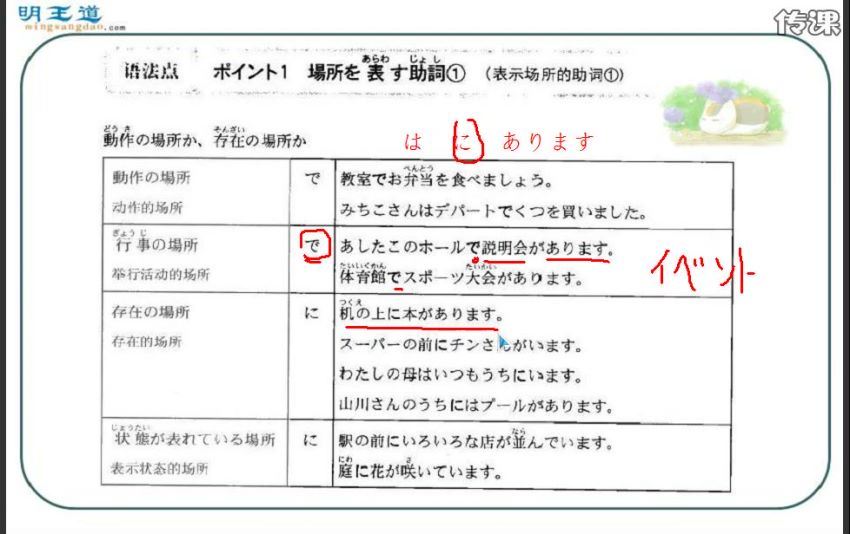 明王道
mingwangdao.com
传课
语法点 ポイント1 場所を表す助詞① (表示场所的助词①)
あらわ じょし
どうさ そんざい
動作の場所か、存在の場所か
は に あります
動作の場所 で 教室でお弁当を食べましょう。
べんとう
动作的场所 みちこさんはデパートでくつを買いました。
ぎょうじ
行事の場所 で あしたこのホールで説明会があります。
たいいくかん たいかい
举行活动的场所 体育館でスポーツ大会があります。
イベント
つくえ
存在の場所 に 机の上に本があります。
存在的场所 スーパーの前にチンさんがいます。
わたしの母はいつもうちにいます。
山川さんのうちにはプールがあります。
じょうたい なら
状態が表れている場所 に 駅の前にいろいろな店が並んでいます。
にわ さ
表示状态的场所 庭に花が咲いています。